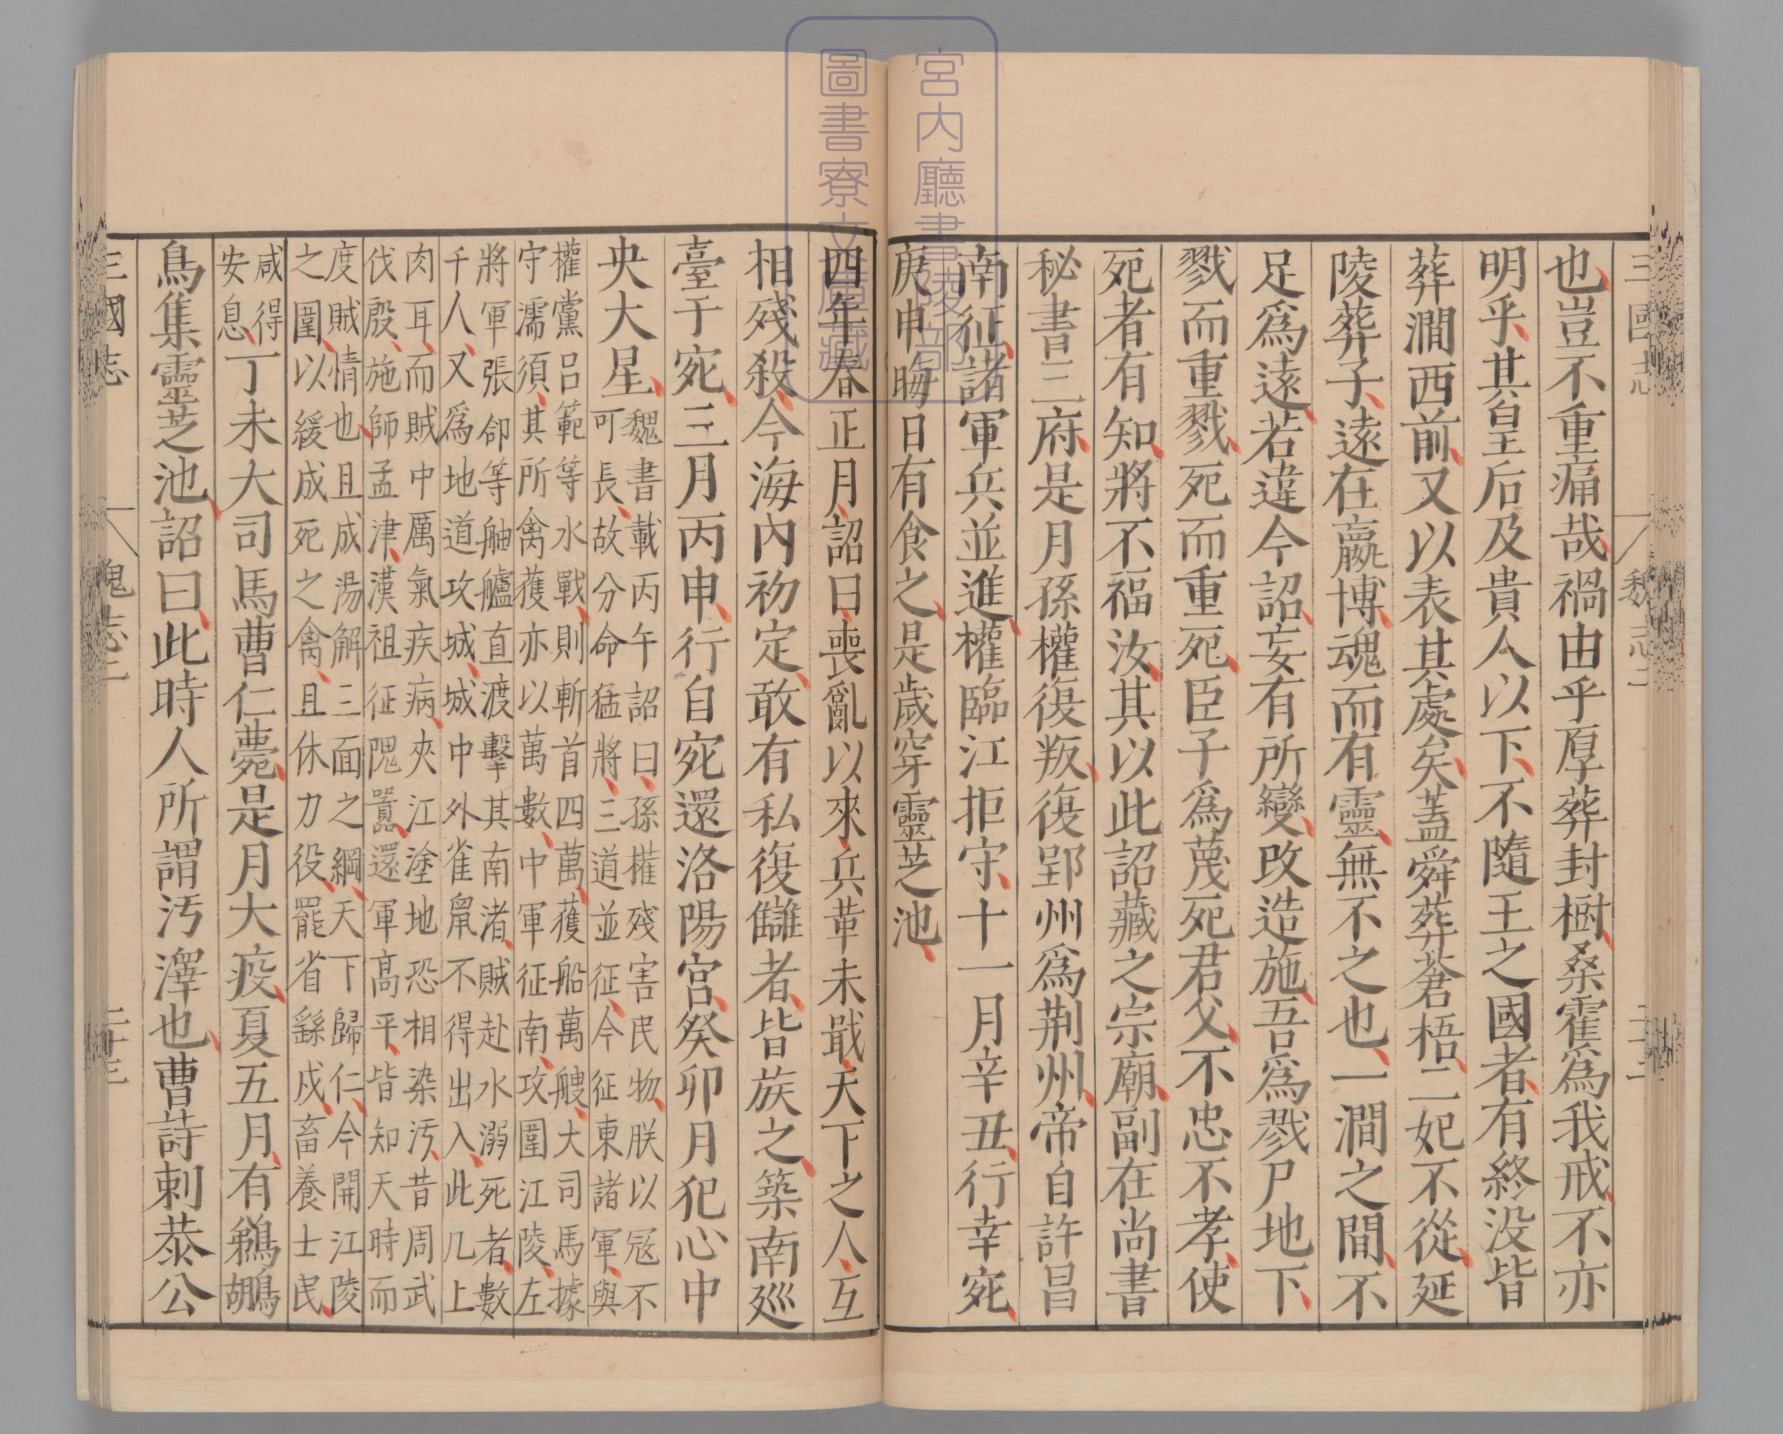 三國志 魏志二 二十二
也豈不重痛哉禍由乎厚葬封樹桑霍爲我戒不亦
明乎其皇后及貴人以下不隨王之國者有終没皆
葬澗西前又以表其處矣蓋舜葬蒼梧二妃不從延
陵葬子遠在嬴博魂而有靈無不之也一澗之間不
足爲遠若違今詔妄有所變改造施吾爲戮尸地下
戮而重戮死而重死臣子爲蔑死君父不忠不孝使
死者有知將不福汝其以此詔藏之宗廟副在尚書
秘書三府是月孫權復叛復郢州爲荆州帝自許昌
南征諸軍兵並進權臨江拒守十一月辛丑行幸宛
庚申晦日有食之是歲穿靈芝池
四年春正月詔曰喪亂以來兵革未戢天下之人互
相殘殺今海内初定敢有私復讎者皆族之築南巡
臺于宛三月丙申行自宛還洛陽宮癸卯月犯心中
央大星
魏書載丙午詔曰孫權殘害民物朕以冦不
可長故分命猛將三道並征今征東諸軍與
權黨吕範等水戰則斬首四萬獲船萬艘大司馬據
守濡須其所禽獲亦以萬數中軍征南攻圍江陵左
將軍張郃等舳艫直渡擊其南渚賊赴水溺死者數
千人又爲地道攻城城中外雀鼠不得出入此几上
肉耳而賊中厲氣疾病夾江塗地恐相染污昔周武
伐殷施師孟津漢祖征隗囂還軍高平皆知天時而
度賊情也且成湯解三面之綱天下歸仁今開江陵
之圍以緩成死之禽且休力役罷省繇戍畜養士民
咸得
安息
丁未大司馬曹仁薨是月大疫夏五月有鵜鶘
鳥集靈芝池詔曰此時人所謂汚澤也曹詩刺恭公
三國志 魏志二 二十三
宮内廳書陵部
圖書寮文庫藏